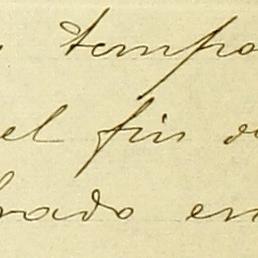 tempo
el fin d
rado en